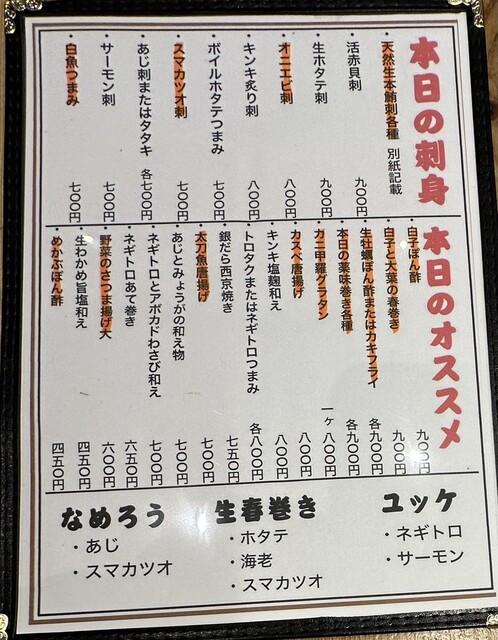 本日の刺身
・天然生本鮪刺各種 別紙記載
・活赤貝刺 九〇〇円
・生ホタテ刺 九〇〇円
・オニエビ刺 八〇〇円
・キンキ炙り刺 八〇〇円
・ボイルホタテつまみ 七〇〇円
・スマカツオ刺 七〇〇円
・あじ刺またはタタキ 各七〇〇円
・サーモン刺 七〇〇円
・白魚つまみ 七〇〇円
本日のオススメ
・白子ぽん酢 九〇〇円
・白子と大葉の春巻き 九〇〇円
・生牡蠣ぽん酢またはカキフライ 各九〇〇円
・本日の薬味巻き各種 各九〇〇円
・カニ甲羅グラタン 一ヶ八〇〇円
・カスベ唐揚げ 八〇〇円
・キンキ塩麹和え 八〇〇円
・トロタクまたはネギトロつまみ 各八〇〇円
・銀だら西京焼き 七五〇円
・太刀魚唐揚げ 七〇〇円
・あじとみょうがの和え物 七〇〇円
・ネギトロとアボカドわさび和え 七〇〇円
・ネギトロあて巻き 六五〇円
・野菜のさつま揚げ大 六〇〇円
・生わかめ旨塩和え 四五〇円
・めかぶぽん酢 四五〇円
ユッケ
・ネギトロ
・サーモン
生春巻き
・ホタテ
・海老
・スマカツオ
なめろう
・あじ
・スマカツオ